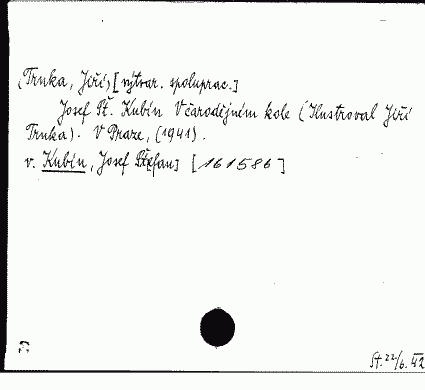 (Trnka, Jiří) [výtvar. spoluprac.]
Josef Št. Kubín V čarodějném kole (Ilustroval Jiří
Trnka). V Praze, (1941).
v. Kubín, Josef Št[efan] [161586]
St. 22/6. 42